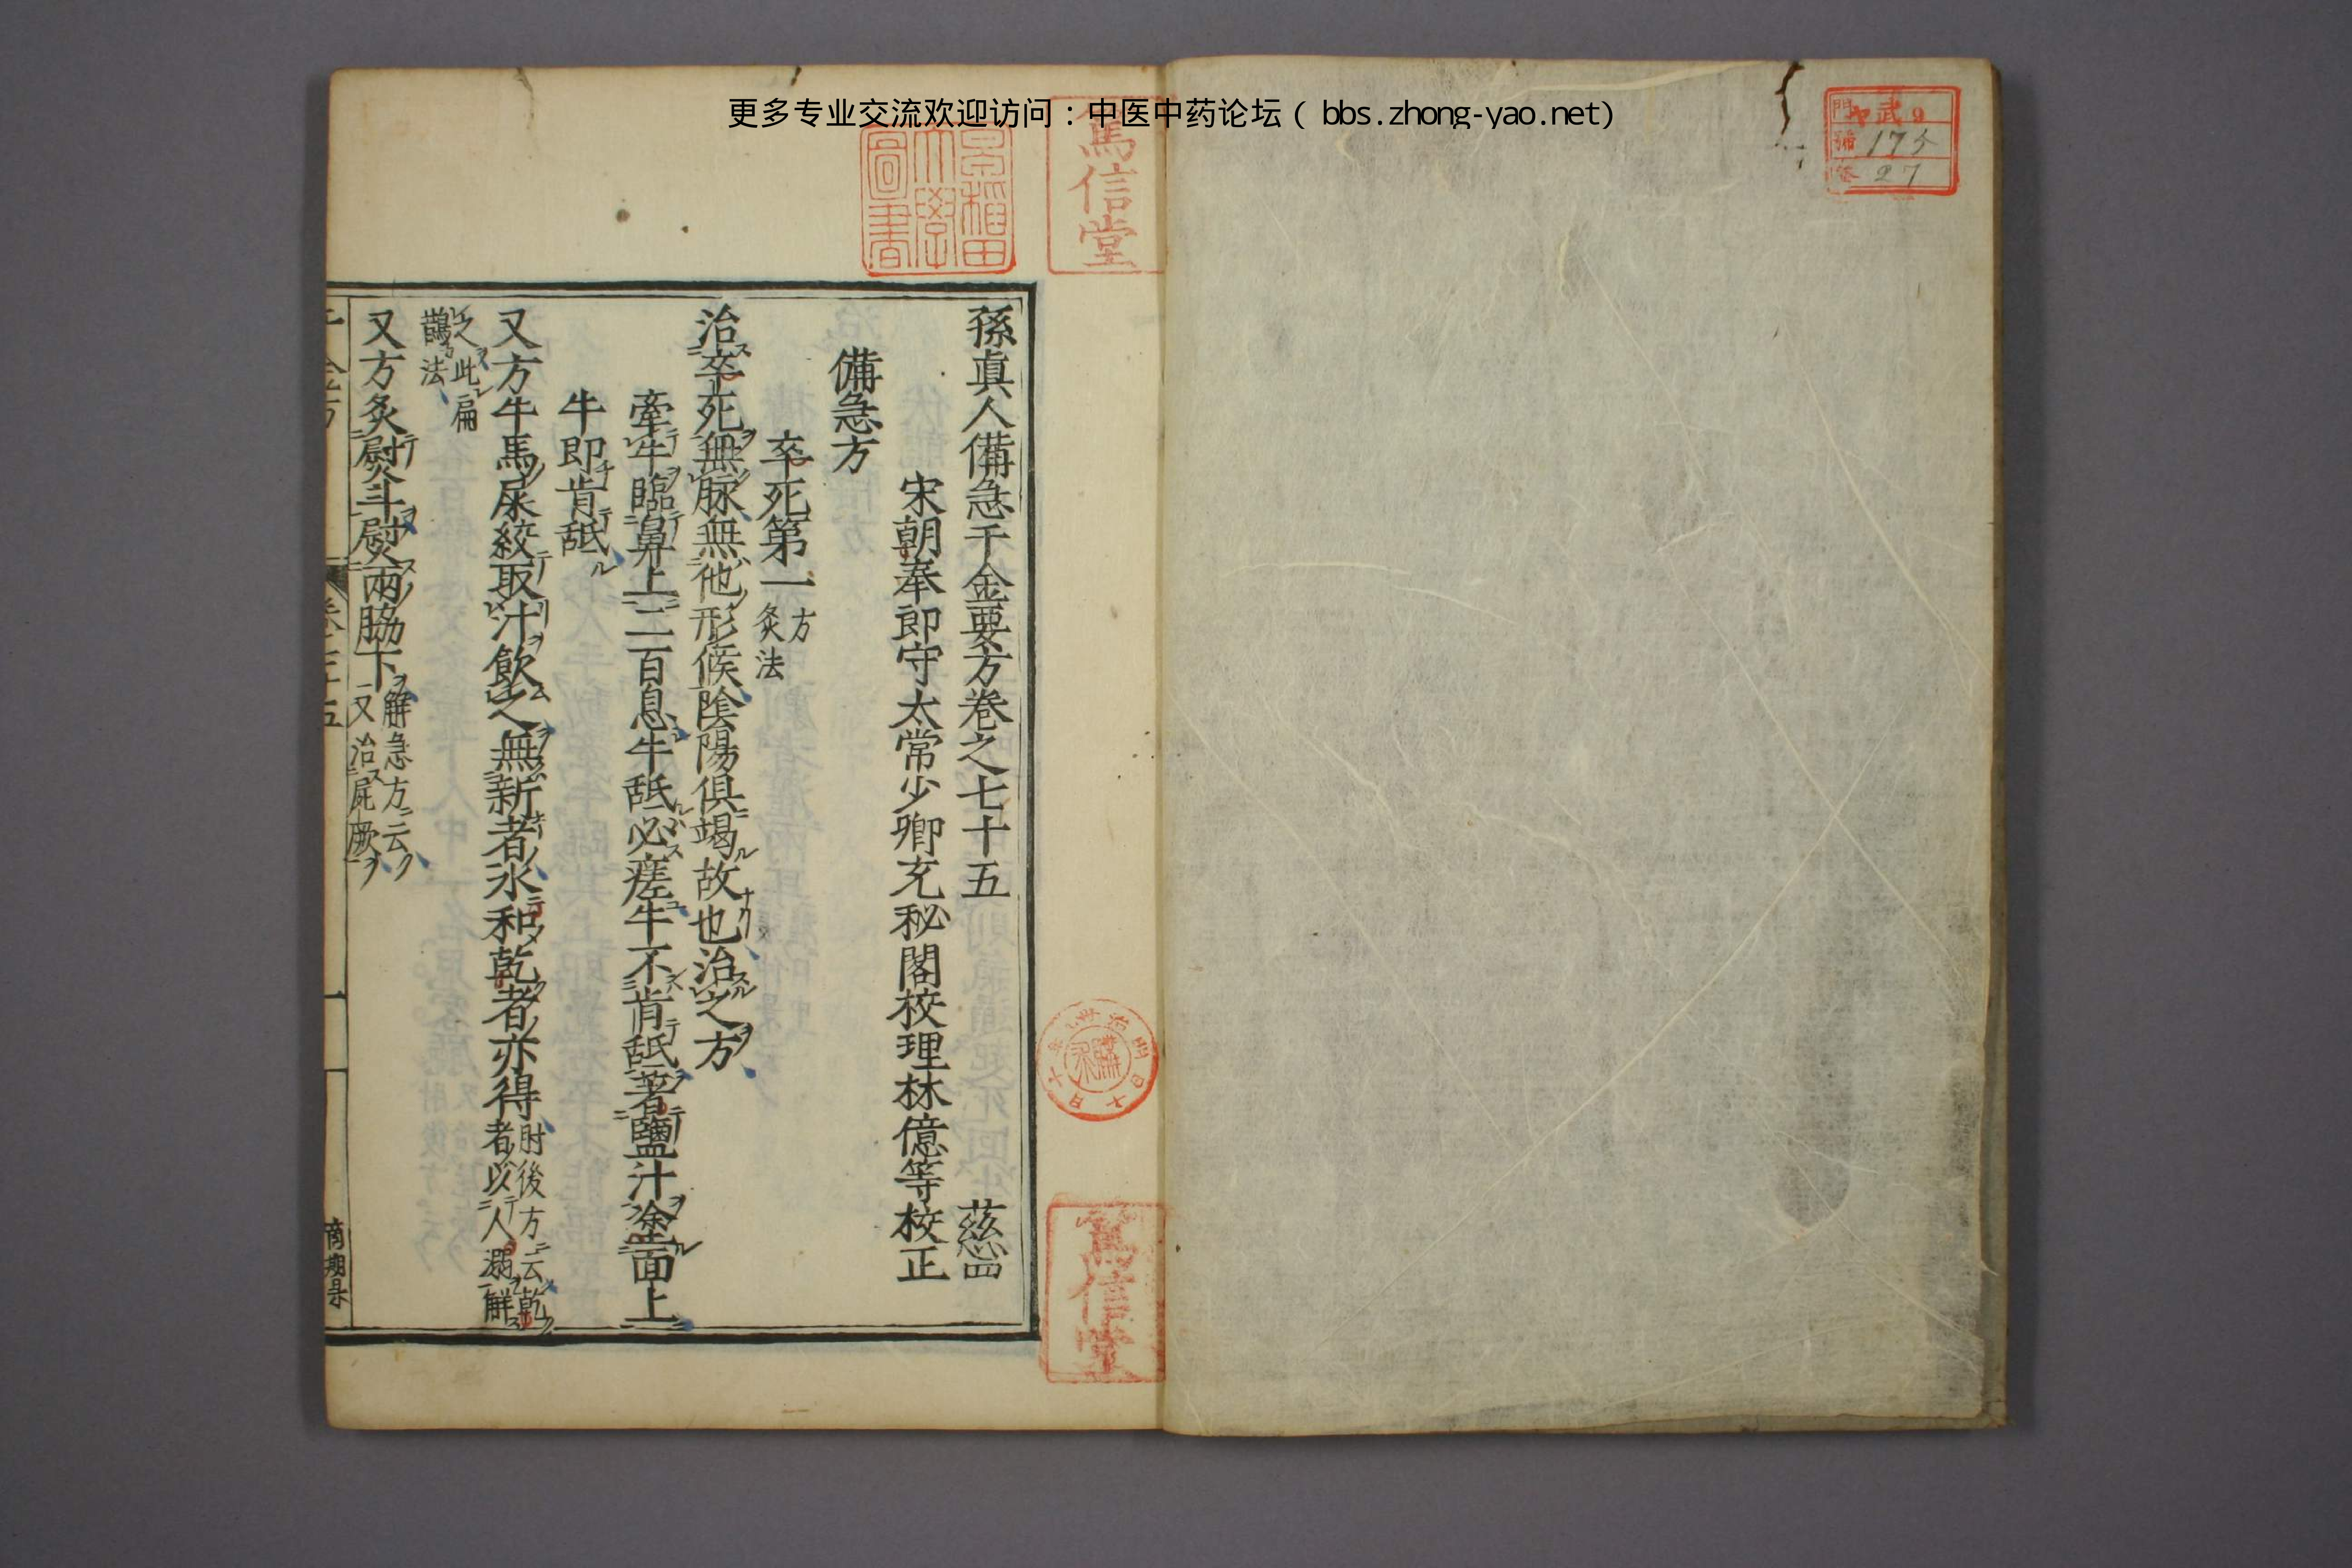 更多专业交流欢迎访问：中医中药论坛（ bbs.zhong-yao.net)
門 ヤ武9
號 175
卷 27
篤信堂
早稲田大學圖書
孫真人備急千金要方卷之七十五 慈四
宋朝奉郎守太常少卿充秘閣校理林億等校正
備急方
卒死第一 方灸法
治卒死無脉無他形候陰陽俱竭故也治之方
牽牛臨鼻上二百息牛舐必瘥牛不肯舐著鹽汁塗面上
牛即肯舐
又方牛馬尿絞取汁飲之無新者水和乾者亦得 肘後方云乾者以人溺解
之此扁鵲法
又方炙熨斗熨兩脇下 解急方云又治屍厥
篤信堂